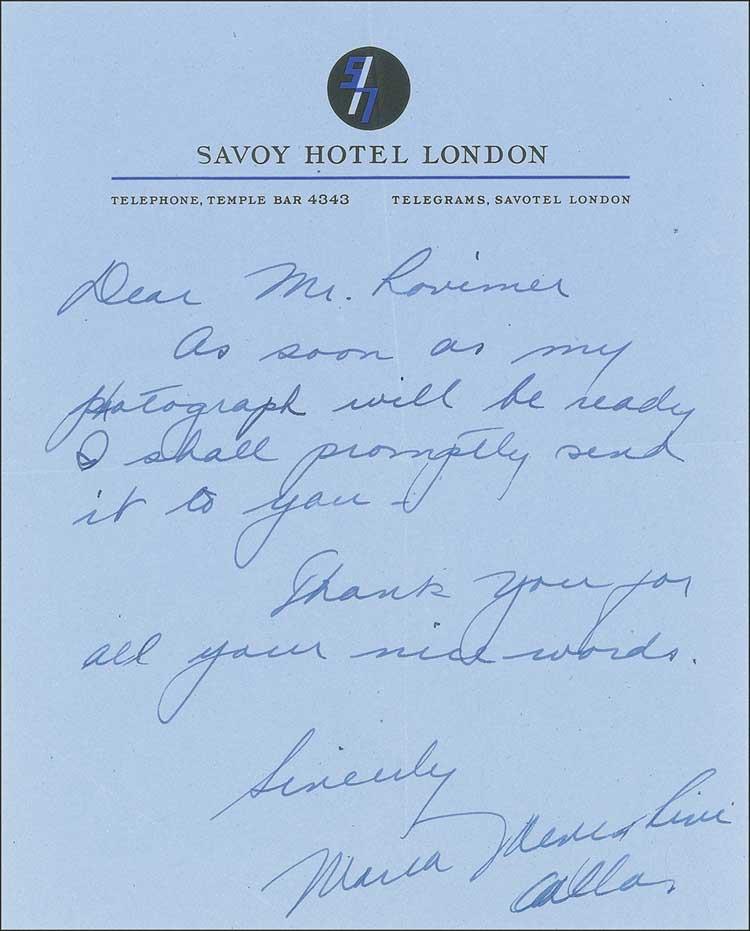 SH
SAVOY HOTEL LONDON
TELEPHONE, TEMPLE BAR 4343 TELEGRAMS, SAVOTEL LONDON
Dear Mr. Lorimer
As soon as my
photograph will be ready
I shall promptly send
it to you –
Thank you for
all your nice words.
Sincerely
Maria Meneghini
Callas